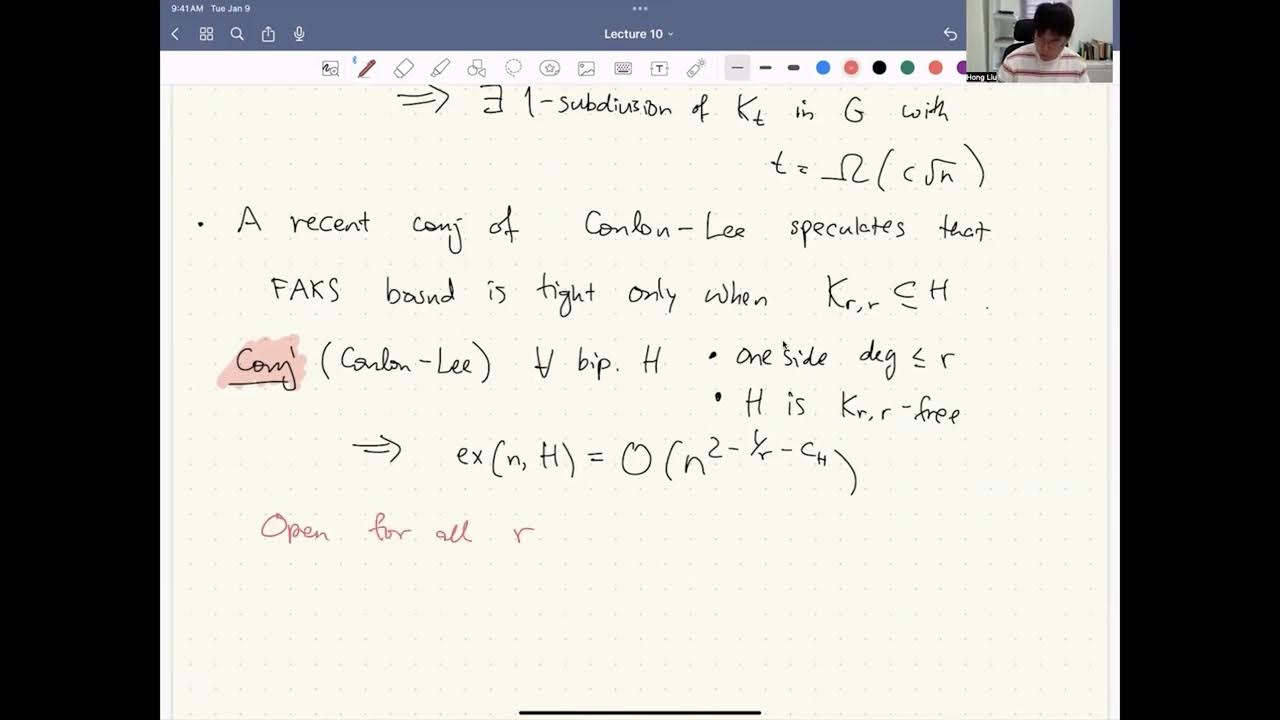 9:41AM Tue Jan 9
Lecture 10
Hong Liu
⟹ ∃ 1-subdivision of K_t in G with
t = Ω(c√n)
• A recent conj of Conlon-Lee speculates that
FAKS bound is tight only when K_{r,r} ⊆ H.
Conj (Conlon-Lee) ∀ bip. H • one side deg ≤ r
• H is K_{r,r}-free
⟹ ex(n, H) = O(n^{2 - 1/r - c_H})
Open for all r